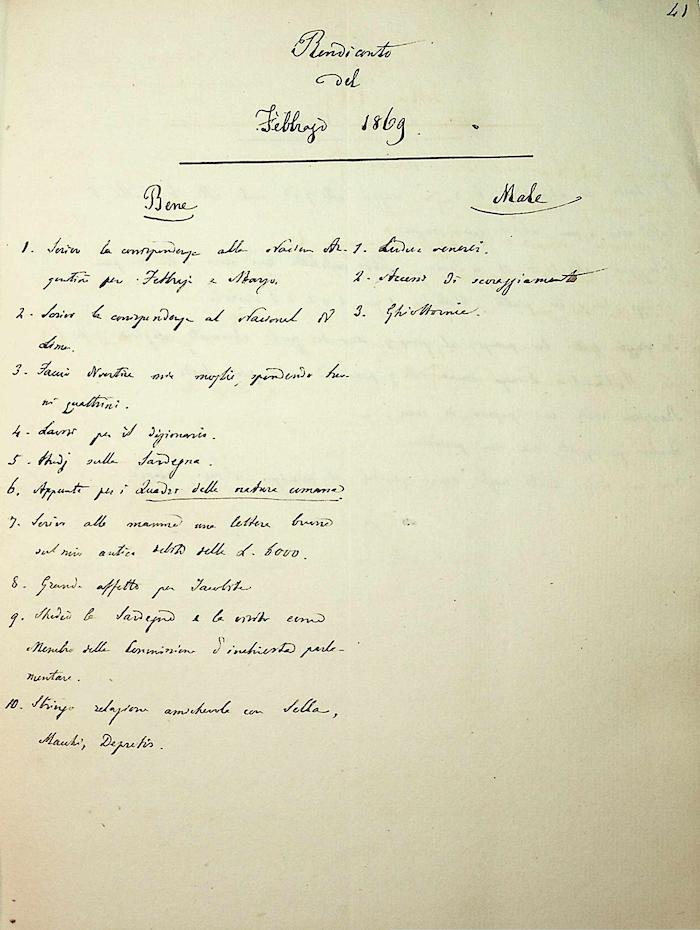 41
Rendiconto
del
Febbrajo 1869.
Bene
Male
1. Scrivo la corrispondenza alla Nacion Ar-
gentina per Febbrajo e Marzo.
2. Scrivo la corrispondenza al Nacional di
Lima.
3. Faccio mia moglie, spendendo
ni quattrini.
4. Lavoro per il dizionario.
5. Studj sulla Sardegna.
6. Appunti per i Quadri della natura umana
7. Scrivo alla mamma una lettera buona
sul mio antico debito delle L. 6000.
8. Grande affetto per Jacobita
9. Studio la Sardegna e la visito come
Membro della Commissione d'inchiesta parla-
mentare.
10. Stringo relazione amichevole con Sella,
Depretis.
1. venerei.
2. Accessi di scoraggiamento
3. Ghiottornie.